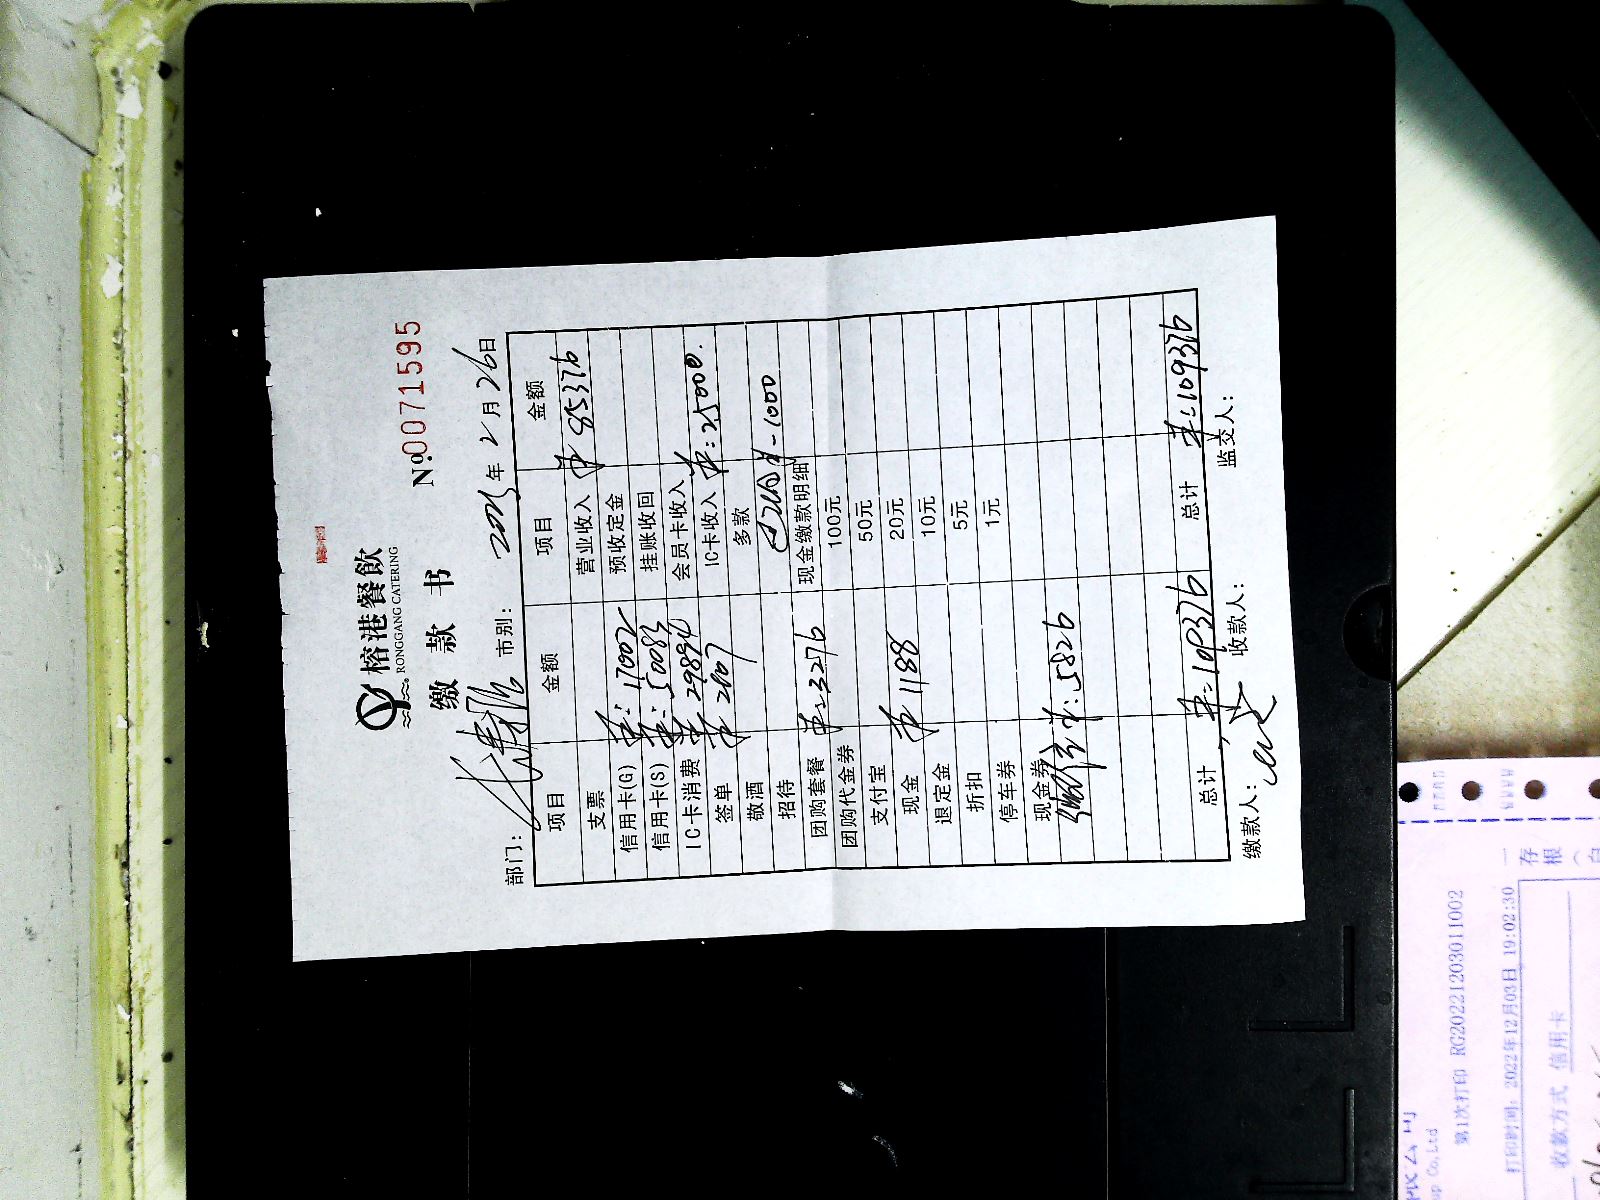 榕港餐飲
RONGGANG CATERING
缴 款 书
№0071595
部门: 市别: 2023年2月26日
项目 金额 项目 金额
支票 营业收入 ¥85376
信用卡(G) ¥:17002 预收定金
信用卡(S) ¥:50083 挂账收回
IC卡消费 ¥29894 会员卡收入
签单 ¥2107 IC卡收入 ¥:25000.
敬酒 多款
招待 -1000
团购套餐 ¥:3276 现金缴款明细
团购代金券 100元
支付宝 50元
现金 ¥1188 20元
退定金 10元
折扣 5元
停车券 1元
现金券
¥:5826
总计 ¥:109376 总计 ¥:109376
缴款人: 收款人: 监交人:
第1次打印 RG20221203011002
打印时间: 2022年12月03日 19:02:30
收款方式 信用卡
Co.Ltd
一
存
根